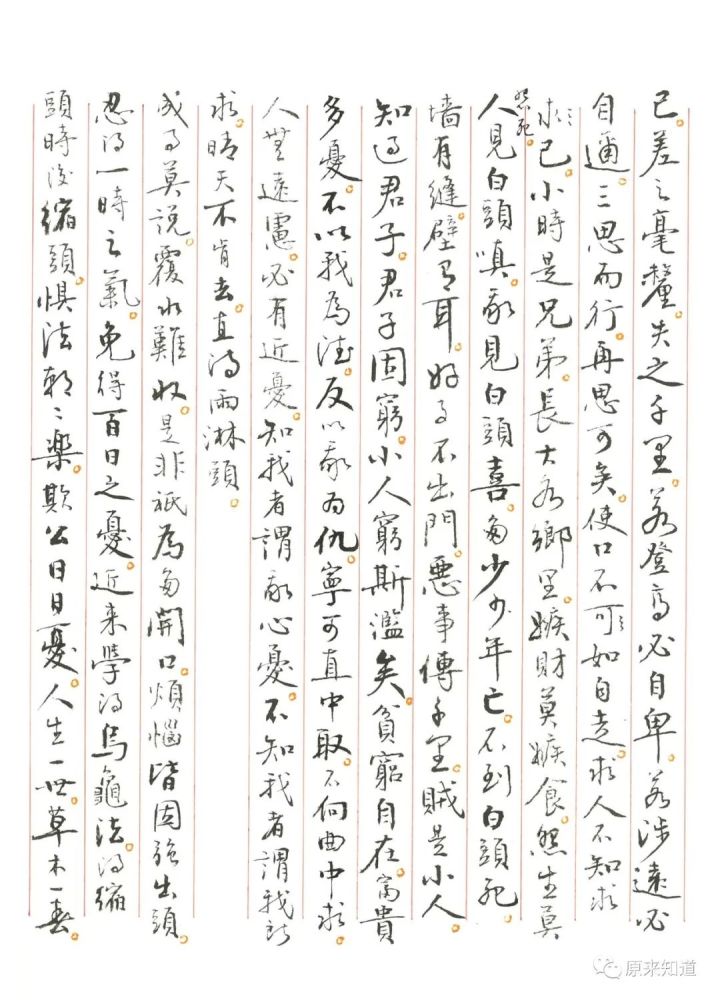 已。差之毫釐。失之千里。若登高必自卑。若涉遠必
自邇。三思而行。再思可矣。使口不可如自走。求人不知求
求已。小時是兄弟。長大各鄉里。嫉財莫嫉食。怨生莫
怨死。
人見白頭嗔。我見白頭喜。多少少年亡。不到白頭死。
墙有縫。壁有耳。好事不出門。惡事傳千里。賊是小人。
知過君子。君子固窮。小人窮斯濫矣。貧窮自在。富貴
多憂。不以我為德。反以我為仇。寧可直中取。不向曲中求。
人無遠慮。必有近憂。知我者謂我心憂。不知我者謂我何
求。晴天不肯去。直待雨淋頭。
成事莫說。覆水難收。是非祇為多開口。煩惱皆因強出頭。
忍得一時之氣。免得百日之憂。近来學得烏龜法。得縮
頭時縮頭。懼法朝〻樂。欺公日日憂。人生一世。草木一春。
原来知道